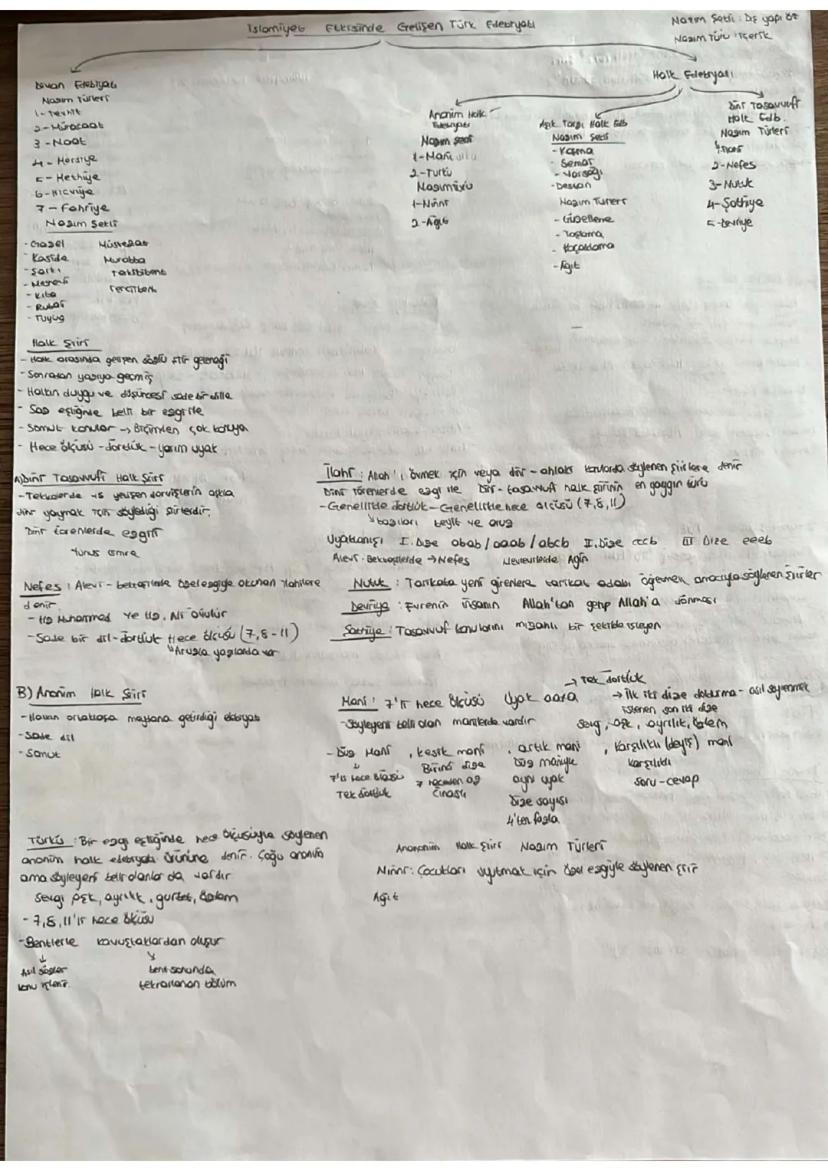 İslamiyet Etkisinde Gelişen Türk Edebiyatı
Nazım Şekli : Dış yapı
Nazım Türü : içerik
Halk Edebiyatı
Divan Edebiyatı
Nazım Türleri
1- Tevhit
2- Münacaat
3 - Naat
4 - Mersiye
5 - Methiye
6- Hicviye
7 - Fahriye
Nazım Şekli
- Gazel Müstezat
- Kaside Murabba
- Şarkı Terkibibent
- Mesnevi Terciibent
- Kıta
- Rubai
- Tuyuğ
Anonim Halk
Edebiyatı
Nazım Şekli
1- Mani
2- Türkü
Nazım türü
1- Ninni
2- Ağıt
Aşık Tarzı Halk Edb
Nazım Şekli
- Koşma
- Semai
- Varsağı
- Destan
Nazım Türleri
- Güzelleme
- Taşlama
- Koçaklama
- Ağıt
Dini Tasavvufi
Halk Edb.
Nazım Türleri
1. ilahi
2- Nefes
3- Nutuk
4- Şathiye
5- Devriye
Halk Şiiri
- Halk arasında gelişen sözlü şiir geleneği
- Sonradan yazıya geçmiş
- Halkın duygu ve düşüncesi sade bir dille
- Saz eşliğinde belli bir ezgi ile
- Somut konular → Biçimden çok konuya
- Hece ölçüsü - dörtlük - yarım uyak
A) Dini Tasavvufi Halk Şiiri
- Tekkelerde yetişen dervişlerin aşkla
dini yaymak için söylediği şiirlerdir.
Dini törenlerde ezgili
Yunus Emre
İlahi : Allah'ı övmek için veya dini - ahlaki konularda söylenen şiirlere denir
Dini törenlerde ezgi ile Dini - tasavvufi halk şiirinin en yaygın türü
- Genellikle dörtlük - Genellikle hece ölçüsü (7, 8, 11)
↳ bazıları beyit ve aruz
Uyaklanışı I. Dize abab / aaab / abcb II. Dize cccb III Dize eeeb
Alevi - Bektaşilerde → Nefes Mevlevilerde Ayin
Nefes : Alevi - bektaşilerde özel ezgiyle okunan ilahilere
denir
- Hz Muhammed ve Hz. Ali övülür
- Sade bir dil - dörtlük Hece ölçüsü (7, 8 - 11)
↳ Aruzla yazılanda var
Nutuk : Tarikata yeni girenlere tarikat adabı öğretmek amacıyla söylenen şiirler
Devriye : Evrenin insanın Allah'tan gelip Allah'a dönmesi
Şathiye : Tasavvuf konularını mizahlı bir şekilde işleyen
B) Anonim Halk Şiiri
- Halkın ortaklaşa meydana getirdiği edebiyat
- Sade dil
- Somut
→ Tek dörtlük
Mani : 7'li hece ölçüsü Uyak aaxa → İlk iki dize doldurma - asıl söylenmek
istenen son iki dize
- Söyleyeni belli olan manilerde vardır Sevgi, aşk, ayrılık, özlem
- Düz Mani , kesik mani , artık mani , karşılıklı (deyiş) mani
↓ Birinci dize düz maniyle karşılıklı
7'li hece ölçüsü 7 heceden az aynı uyak soru - cevap
Tek dörtlük Cinaslı dize sayısı
4'ten fazla
Türkü : Bir ezgi eşliğinde hece ölçüsüyle söylenen
anonim halk edebiyatı ürününe denir. Çoğu anonim
ama söyleyeni belli olanlar da vardır
Sevgi aşk, ayrılık, gurbet, özlem
- 7, 8, 11'li hece ölçüsü
- Bentlerle kavuştaklardan oluşur
↓ ↓
Asıl sözler bent sonunda
konu işlenir tekrarlanan bölüm
Anononim Halk Şiiri Nazım Türleri
Ninni : Çocukları uyutmak için özel ezgiyle söylenen şiir
Ağıt